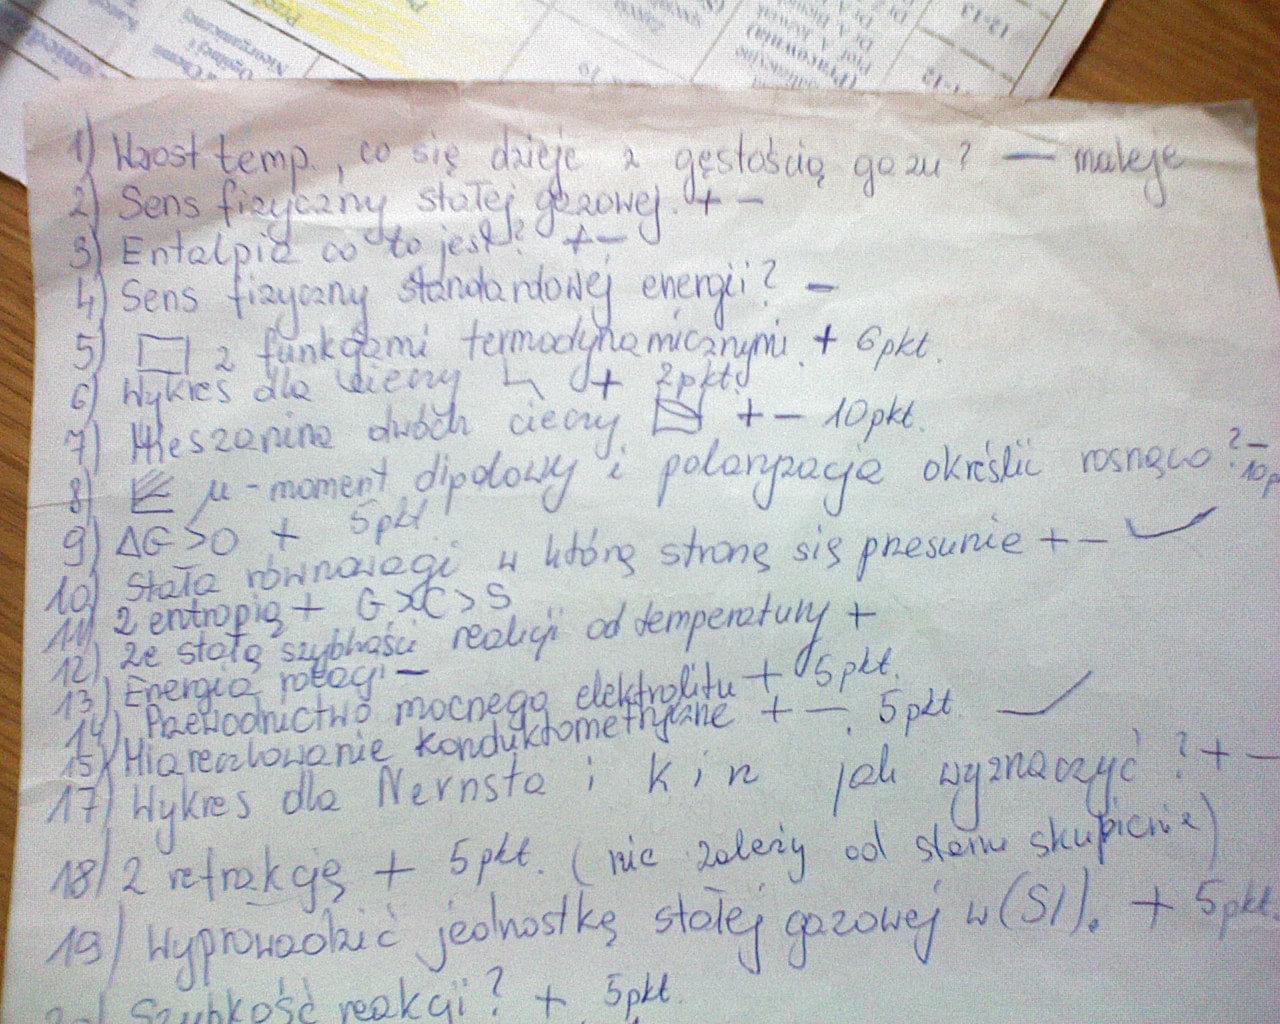 12-13
11-12
1) Wzrost temp., co się dzieje z gęstością gazu? — maleje
2) Sens fizyczny stałej gazowej. + -
3) Entalpia co to jest? + -
4) Sens fizyczny standardowej energii? -
5) z funkcjami termodynamicznymi. + 6pkt.
6) Wykres dla cieczy + 2pkt.
7) Mieszanina dwóch cieczy + - 10pkt.
8) μ - moment dipolowy i polaryzacja określić rosnąco? -
10p
9) ΔG>0 + 5pkt
10) Stała równowagi w którą stronę się przesunie + - ✓
11) Z entropią + G>C>S
12) Ze stałą szybkości reakcji od temperatury +
13) Energia rotacji -
14) Przewodnictwo mocnego elektrolitu + 5pkt.
15) Miareczkowanie konduktometryczne + -. 5pkt ✓
17) Wykres dla Nernsta i k i n jak wyznaczyć? + -
18) Z refrakcją + 5pkt. (nie zależy od stanu skupienia)
19) Wyprowadzić jednostkę stałej gazowej w (SI). + 5pkt.
20) Szybkość reakcji? + 5pkt.